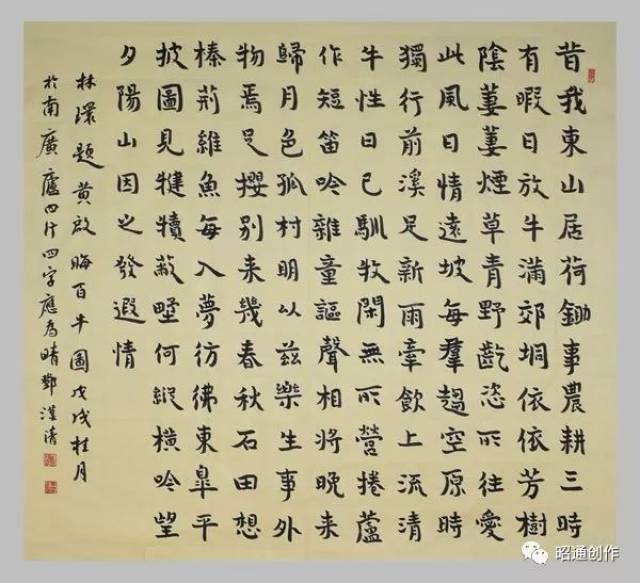 昔我東山居荷鋤事農耕三時
有暇日放牛滿郊坰依依芳樹
陰萋萋煙草青野齕恣所往愛
此風日情遠坡每羣趨空原時
獨行前溪足新雨牽飲上流清
牛性日已馴牧閑無所營捲蘆
作短笛吟雜童謳聲相將晚來
歸月色孤村明以兹樂生事外
物焉足攖別來幾春秋石田想
榛荊維魚每入夢彷彿東皐平
披圖見犍犢蔽野何縱橫吟望
夕陽山因之發遐情
林環題黃啟晦百牛圖戊戌桂月
於南廣廬四行四字應為晴鄧漢
昭通创作